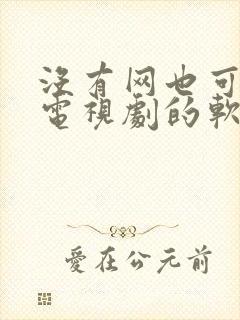 沒有网也可
電視劇的軟
愛在公元前